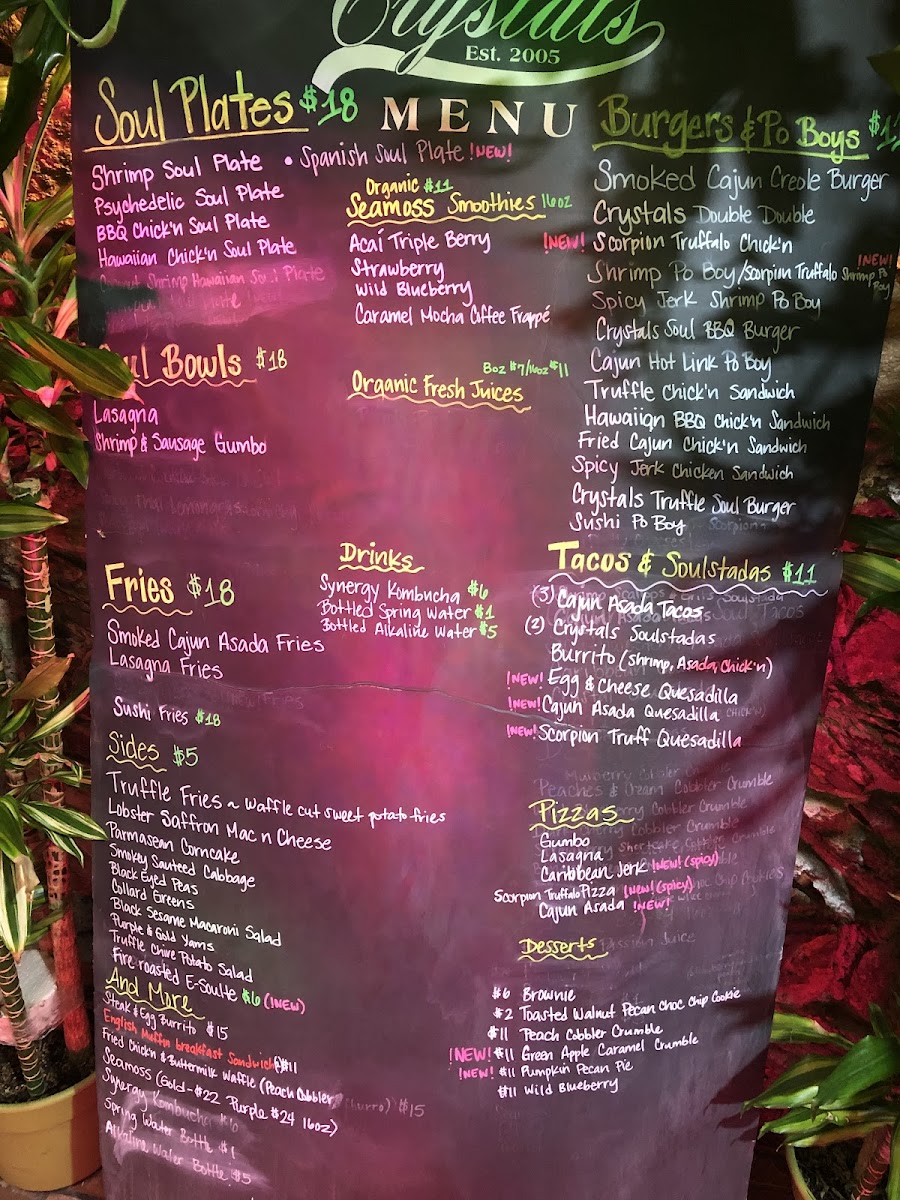 Crystals
Est. 2005
MENU
Soul Plates $18
Shrimp Soul Plate
• Spanish Soul Plate !NEW!
Psychedelic Soul Plate
BBQ Chick'n Soul Plate
Hawaiian Chick'n Soul Plate
Shrimp Hawaiian Soul Plate
Bowls $18
Lasagna
Shrimp & Sausage Gumbo
Fries $18
Smoked Cajun Asada Fries
Lasagna Fries
Sushi Fries $18
Sides $5
Truffle Fries ~ Waffle cut sweet potato fries
Lobster Saffron Mac n Cheese
Parmasean Corncake
Smoky Sauteed Cabbage
Black Eyed Peas
Collard Greens
Black Sesame Macaroni Salad
Purple & Gold Yams
Truffle Chive Potato Salad
Fire roasted E-Soulte $6 (NEW)
And More
Steak & Egg Burrito $15
English Muffin breakfast Sandwich $11
Fried Chick'n & Buttermilk Waffle (Peach Cobbler, Churro) $15
Seamoss (Gold-$22 Purple $24 16oz)
Synergy Kombucha $6
Spring Water Bottle $1
Alkaline Water Bottle $5
Organic $11
Seamoss Smoothies 16oz
Acaí Triple Berry
Strawberry
Wild Blueberry
Caramel Mocha Coffee Frappé
8oz $7/16oz $11
Organic Fresh Juices
Drinks
Synergy Kombucha $6
Bottled Spring Water $1
Bottled Alkaline Water $5
Burgers & Po Boys
Smoked Cajun Creole Burger
Crystals Double Double
!NEW! Scorpion Truffalo Chick'n
Shrimp Po Boy/Scorpion Truffalo Shrimp Po Boy !NEW!
Spicy Jerk Shrimp Po Boy
Crystals Soul BBQ Burger
Cajun Hot Link Po Boy
Truffle Chick'n Sandwich
Hawaiian BBQ Chick'n Sandwich
Fried Cajun Chick'n Sandwich
Spicy Jerk Chicken Sandwich
Crystals Truffle Soul Burger
Sushi Po Boy
Tacos & Soulstadas $11
(3) Cajun Asada Tacos
(2) Crystals Soulstadas
Burrito (shrimp, Asada, Chick'n)
!NEW! Egg & Cheese Quesadilla
!NEW! Cajun Asada Quesadilla
!NEW! Scorpion Truff Quesadilla
Peaches & Cream Cobbler Crumble
Pizzas
Gumbo
Lasagna
Caribbean Jerk !NEW! (spicy)
Scorpion Truffalo Pizza !NEW! (spicy)
Cajun Asada !NEW!
Desserts
$6 Brownie
$2 Toasted Walnut Pecan Choc Chip Cookie
$11 Peach Cobbler Crumble
!NEW! $11 Green Apple Caramel Crumble
!NEW! $11 Pumpkin Pecan Pie
$11 Wild Blueberry